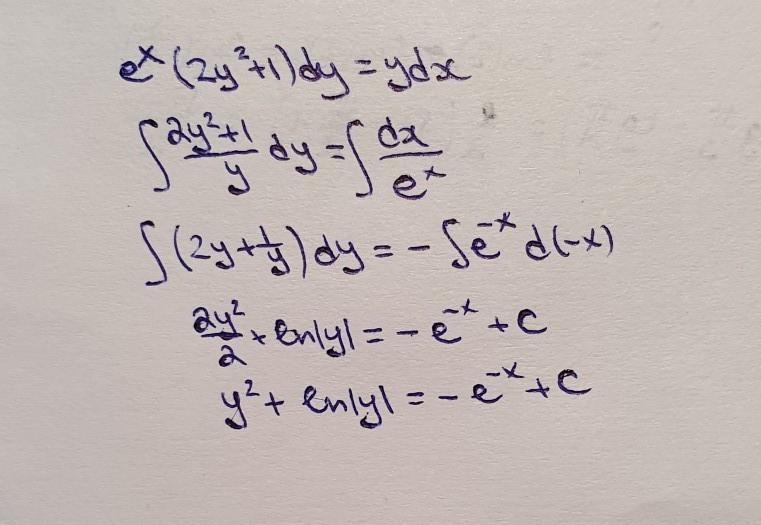 eˣ(2y²+1)dy = ydx
∫ (2y²+1)/y dy = ∫ dx/eˣ
∫(2y+1/y)dy = -∫e⁻ˣ d(-x)
2y²/2 + ln|y| = -e⁻ˣ + C
y² + ln|y| = -e⁻ˣ + C